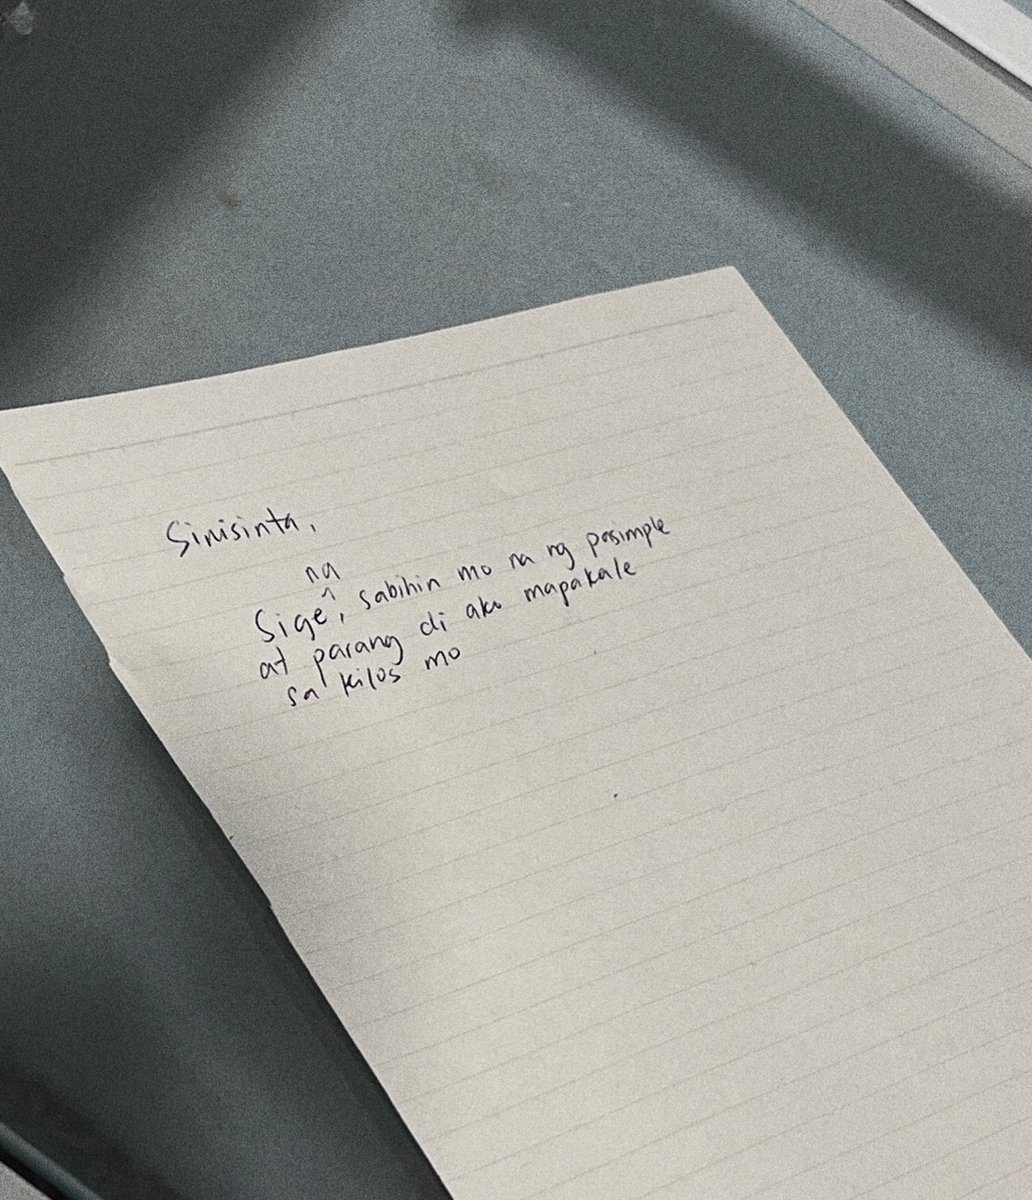 Sinisinta,
na
Sige^, sabihin mo na ng pasimple
at parang di ako mapakale
sa kilos mo